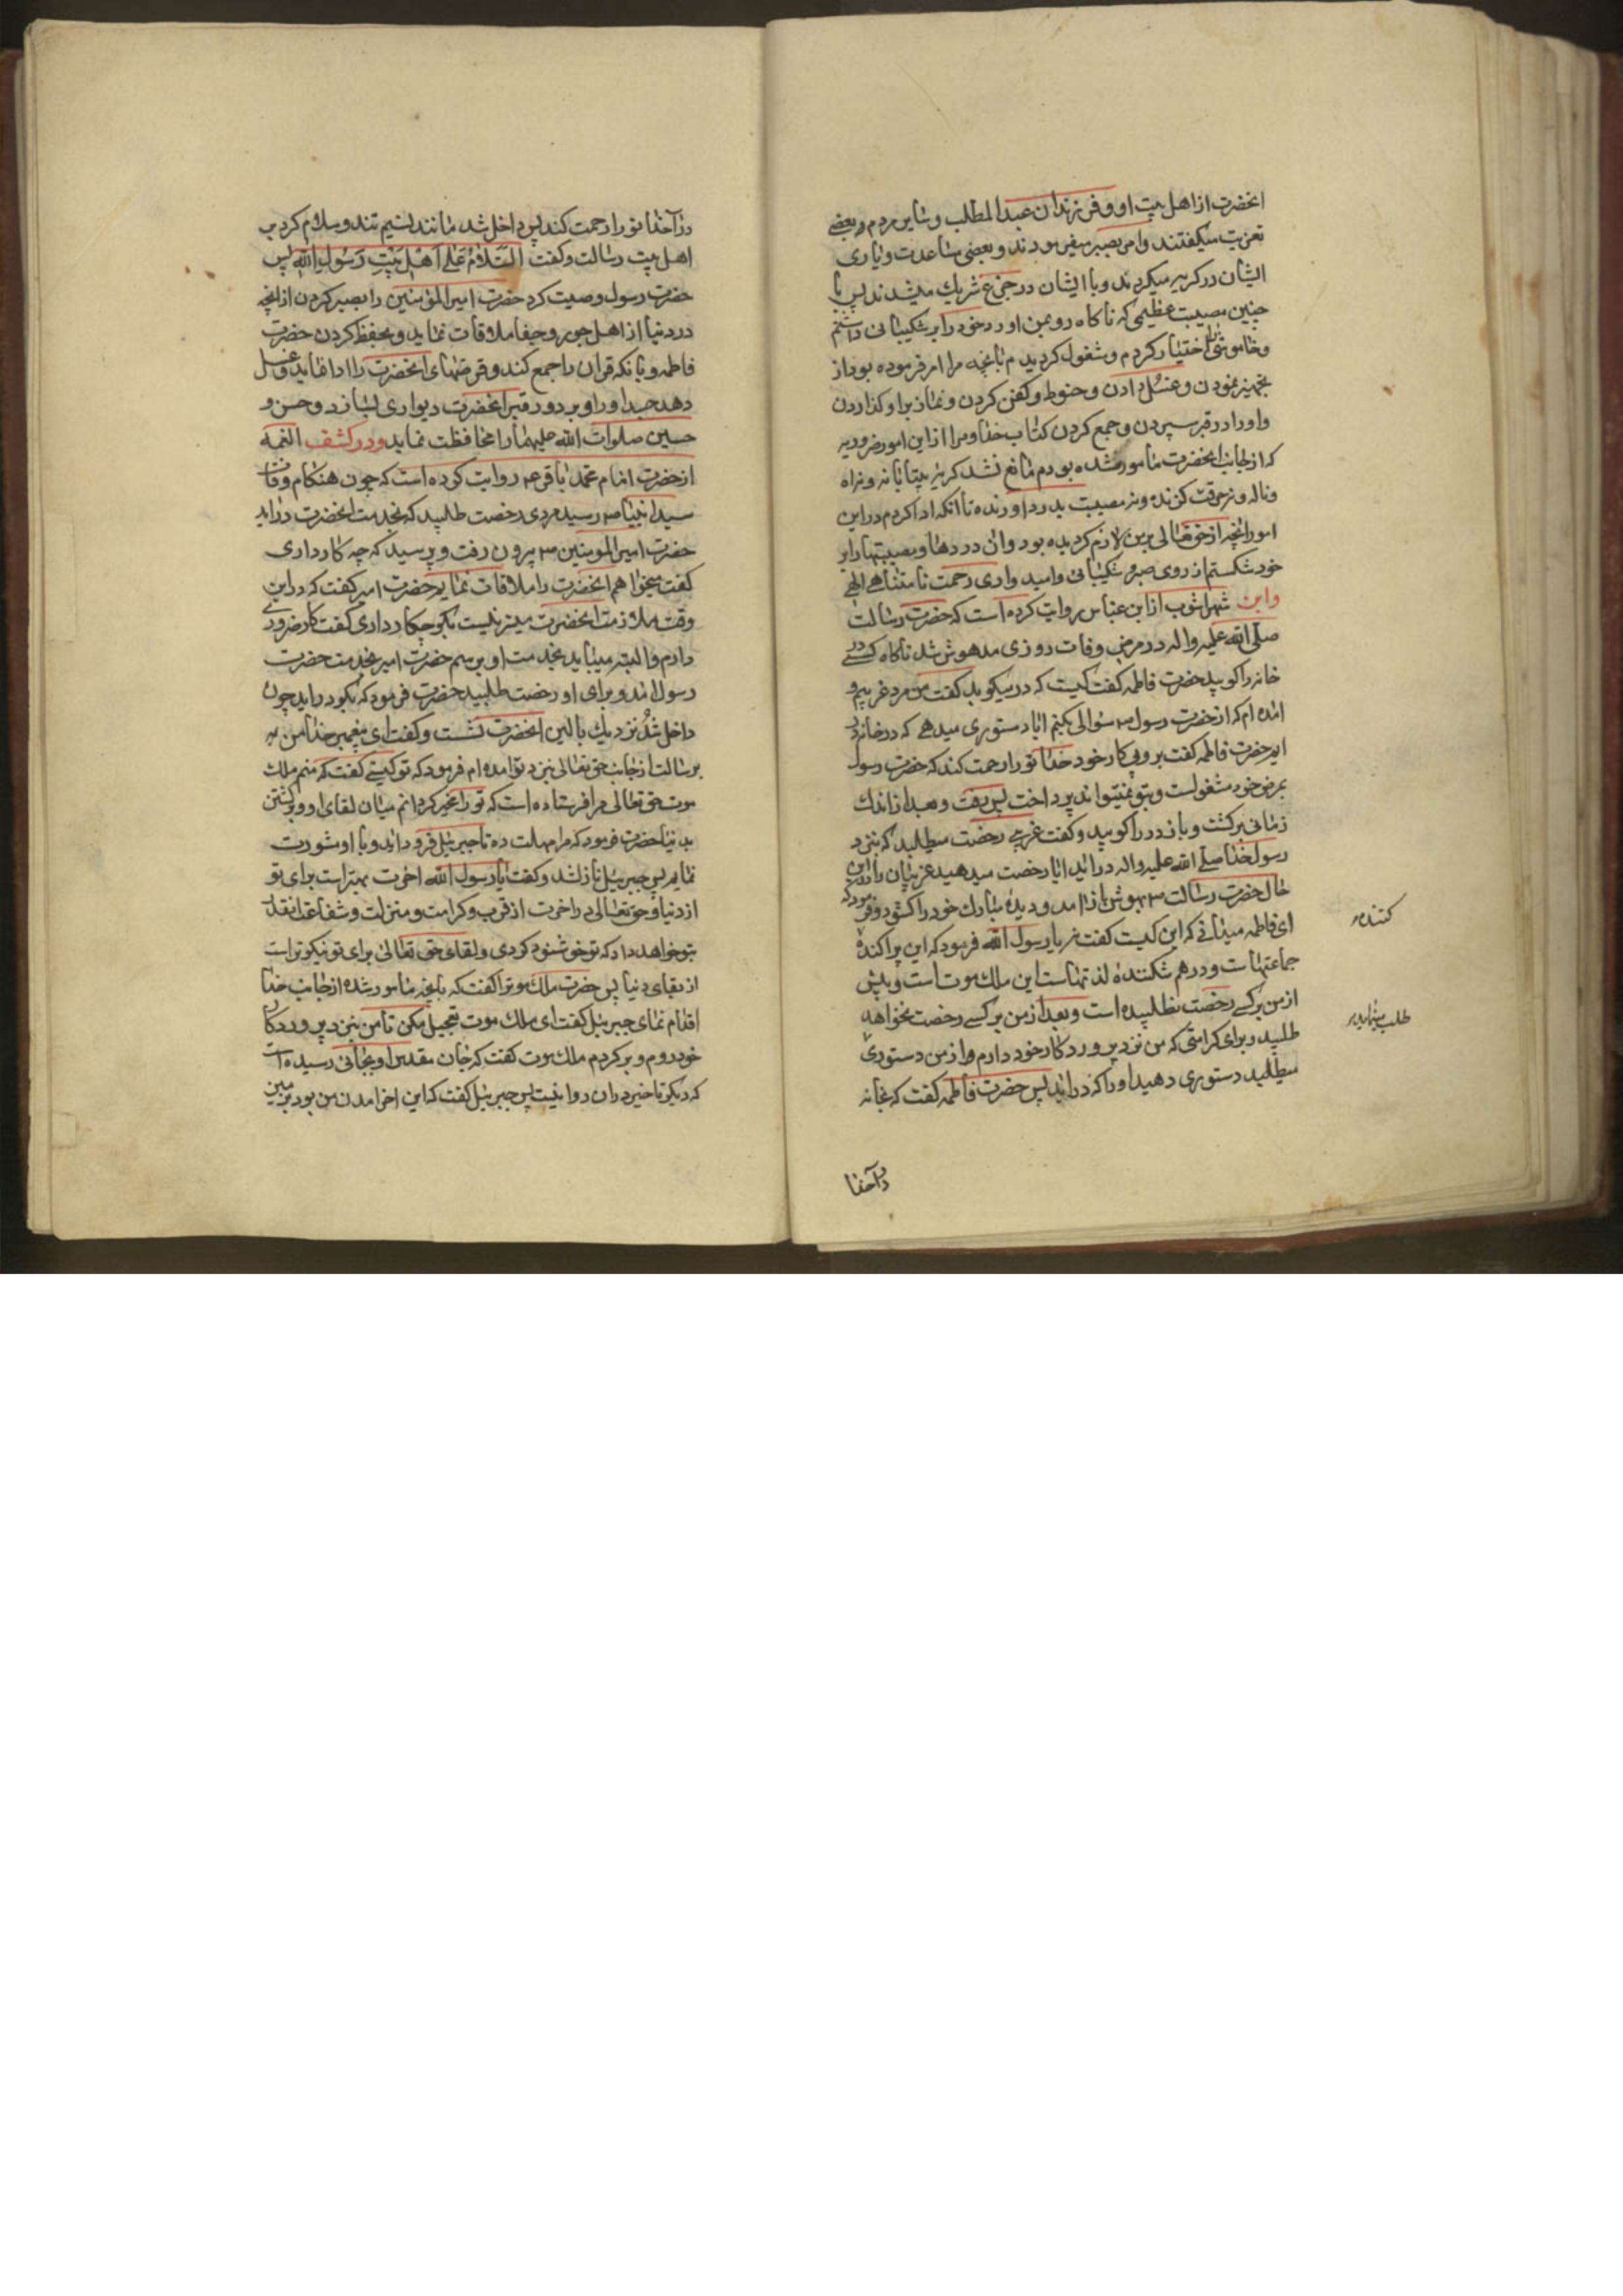 انحضرت از اهل بیت او و فرزندان عبدالمطلب و سایر مردم و بعضی
تعزیت میکفتند و امر بصبر میفرمودند و بعضی مساعدت و یاری
ایشان در کریه میکردند و با ایشان در جزع شریك میشدند پس با
چنین مصیبت عظیمی که ناکاه رو بمن اورد خود را بر شکیبائی داشتم
و خاموشی اختیار کردم و مشغول کردیدم بانچه مرا امر فرموده بود از
تجهیز نمودن و غسل دادن و حنوط و کفن کردن و نماز بر او کذاردن
و او را در قبر سپردن و جمع کردن کتاب خدا و مرا از این امور ضروریه
که از جانب انحضرت مامور شده بودم مانع نشد کریه بیتابانه و نه اه
و ناله و نه حرقت کزنده و نه مصیبت بدرد اورنده تا انکه ادا کردم در این
امور انچه از حق تعالی بر من لازم کردیده بود و ان دردها و مصیبتها را بر
خود شکستم از روی صبر و شکیبائی و امیدواری رحمت نامتناهی الهی
و ابن شهراشوب از ابن عباس روایت کرده است که حضرت رسالت
صلی الله علیه واله در مرض وفات روزی مدهوش شد ناکاه کسی در
خانه را کوبید حضرت فاطمه کفت کیست که در میکوبد کفت من مرد غریبم و
امده ام که از حضرت رسول ص سوالی بکنم ایا دستوری میدهی که در خانه در
ایم حضرت فاطمه کفت برو پی کار خود خدا تو را رحمت کند که حضرت رسول
بمرض خود مشغولست و بتو نمیتواند پرداخت پس رفت و بعد از اندك
زمانی برکشت و باز در را کوبید و کفت غریبی رخصت میطلبد که بنزد
رسول خدا صلی الله علیه واله در اید ایا رخصت میدهید غریبان را در این
حال حضرت رسالت ص بهوش باز امد و دیده مبارك خود را کشود و فرمود که
ای فاطمه میدانی که این کیست کفت نه یا رسول الله فرمود که این پراکنده
کننده
جماعتهاست و درهم شکننده لذتهاست این ملك موت است و پیش
از من بر کسی رخصت نطلبیده است و بعد از من بر کسی رخصت نخواهد
طلب مینماید
طلبید و برای کرامتی که من نزد پروردکار خود دارم از من دستوری
میطلبد دستوری دهید او را که در اید پس حضرت فاطمه کفت که بخانه
درآ خدا
درآ خدا تو را رحمت کند پس داخل شد مانند نسیم تند و سلام کرد بر
اهل بیت رسالت و کفت السَّلامُ عَلی اَهْلِ بَیْتِ رَسُولِ اللهِ پس
حضرت رسول وصیت کرد حضرت امیرالمؤمنین را بصبر کردن از انچه
در دنیا از اهل جور و جفا ملاقات نماید و بحفظ کردن حضرت
فاطمه و بانکه قران را جمع کند و قرضهای انحضرت را ادا نماید و غسل
دهد جسد او را و بر دور قبر انحضرت دیواری بسازد و حسن و
حسین صلوات الله علیهما را محافظت نماید و در کشف الغمه
از حضرت امام محمد باقر ع روایت کرده است که چون هنکام وفات
سید انبیا ص رسید مردی رخصت طلبید که بخدمت انحضرت در اید
حضرت امیرالمومنین ع بیرون رفت و پرسید که چه کار داری
کفت میخواهم انحضرت را ملاقات نمایم حضرت امیر کفت که در این
وقت ملازمت انحضرت میسر نیست بکو چکار داری کفت کار ضروری
دارم و البته میباید بخدمت او برسم حضرت امیر بخدمت حضرت
رسول امد و برای او رخصت طلبید حضرت فرمود که بکو در اید چون
داخل شد نزدیك بالین انحضرت نشست و کفت ای پیغمبر خدا من به
رسالت از جانب حق تعالی بنزد تو امده ام فرمود که تو کیستی کفت که منم ملك
موت حق تعالی مرا فرستاده است که تو را مخیر کردانم میان لقای او و برکشتن
بدنیا حضرت فرمود که مرا مهلت ده تا جبرئیل فرود اید و با او مشورت
نمایم پس جبرئیل نازل شد و کفت یا رسول الله اخرت بهتر است برای تو
از دنیا و حق تعالی در اخرت از قرب و کرامت و منزلت و شفاعت انقدر
بتو خواهد داد که تو خوشنود کردی و لقای حق تعالی برای تو نیکوتر است
از بقای دنیا پس حضرت ملك موت را کفت که بانچه مامور شده از جانب خدا
اقدام نمای جبرئیل کفت ای ملك موت تعجیل مکن تا من بنزد پروردکار
خود روم و بر کردم ملك موت کفت که جان مقدس او بجائی رسیده است
که دیکر تاخیر در ان روا نیست پس جبرئیل کفت که این اخر امدن من بود بزمین